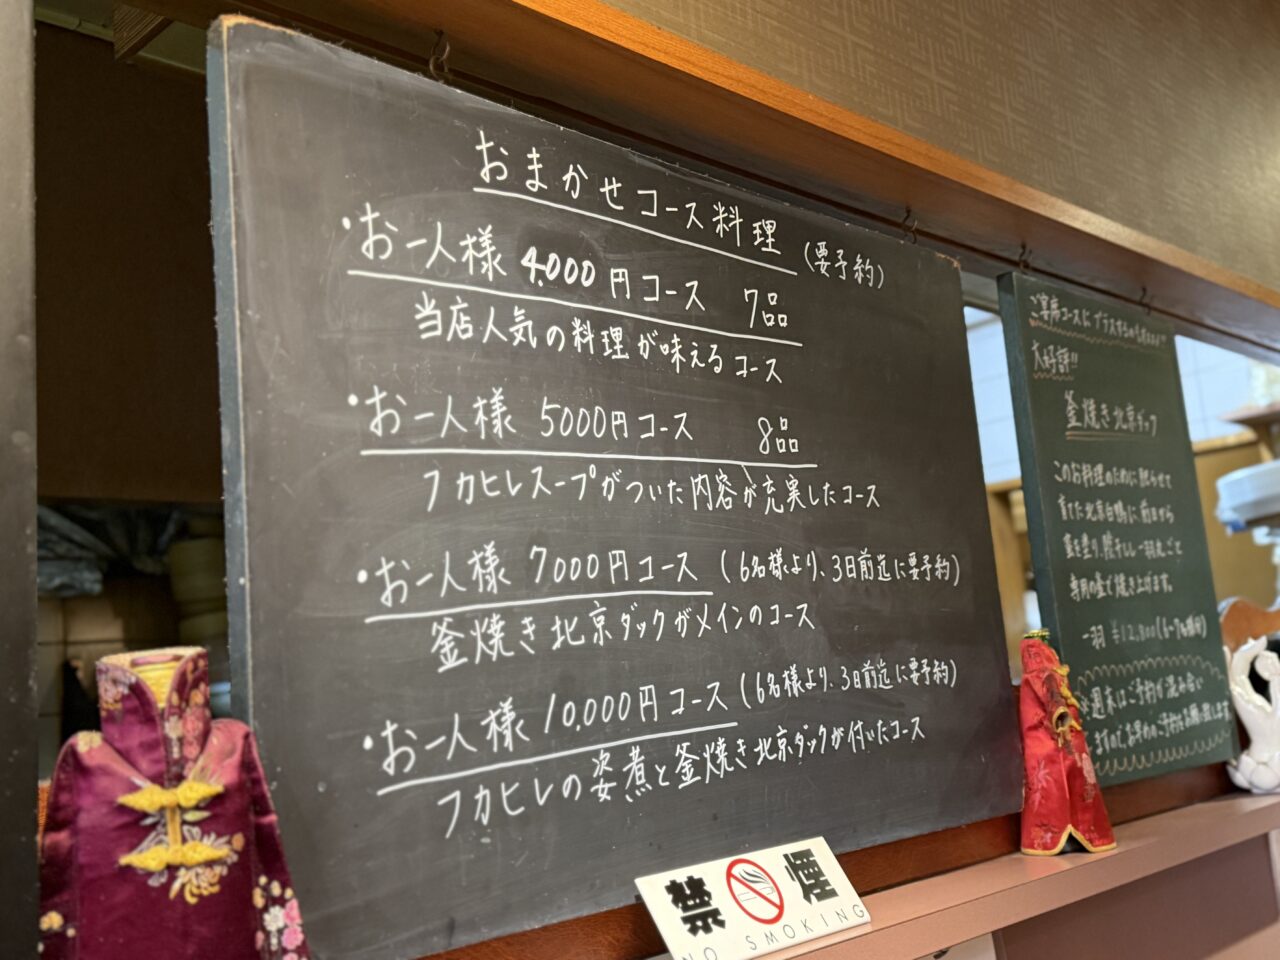 おまかせコース料理
(要予約)
・お一人様 4.000円コース 7品
当店人気の料理が味えるコース
・お一人様 5000円コース 8品
フカヒレスープがついた内容が充実したコース
・お一人様 7000円コース (6名様より、3日前迄に要予約)
釜焼き北京ダックがメインのコース
・お一人様 10.000円コース (6名様より、3日前迄に要予約)
フカヒレの姿煮と釜焼き北京ダックが付いたコース
禁煙
NO SMOKING
ご宴席コースにプラス
大好評!!
釜焼き北京ダック
このお料理のために肥らせて
育てた北京白鴨に前日から
一羽丸ごと
専用の釜で焼き上げます。
一羽 ¥12,800
※週末はご予約が混み合い
ますので、お早めのご予約をお願い致します